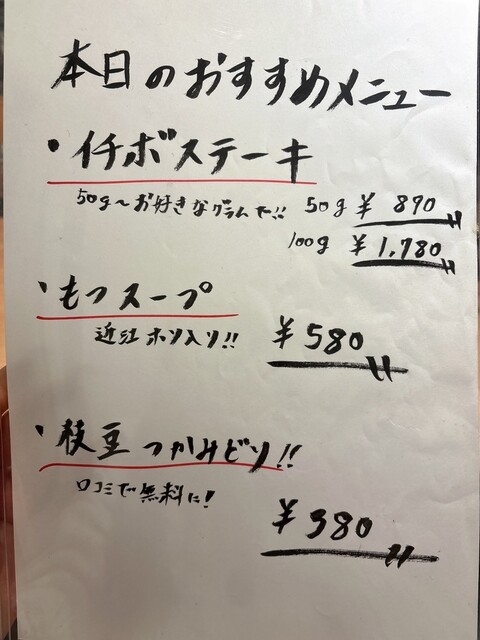 本日のおすすめメニュー
・イチボステーキ
50g〜お好きなグラムで!! 50g ¥890
100g ¥1,780
・もつスープ
近江ホソ入り!! ¥580
・枝豆つかみどり!!
口コミで無料に!
¥380